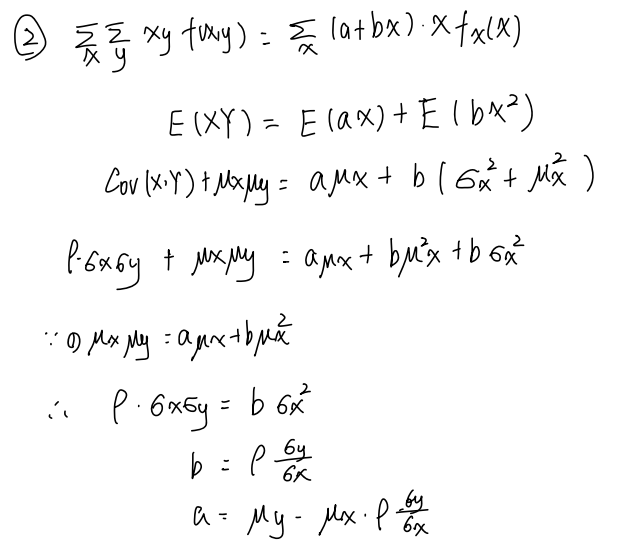 ② Σx Σy xy f(x,y) = Σx (a+bx)·x fx(x)
E(XY) = E(aX) + E(bX²)
Cov(X,Y) + μxμy = aμx + b(σx² + μx²)
ρ·σxσy + μxμy = aμx + bμ²x + bσx²
∵ ① μxμy = aμx + bμx²
∴ ρ·σxσy = bσx²
b = ρ σy/σx
a = μy - μx·ρ σy/σx